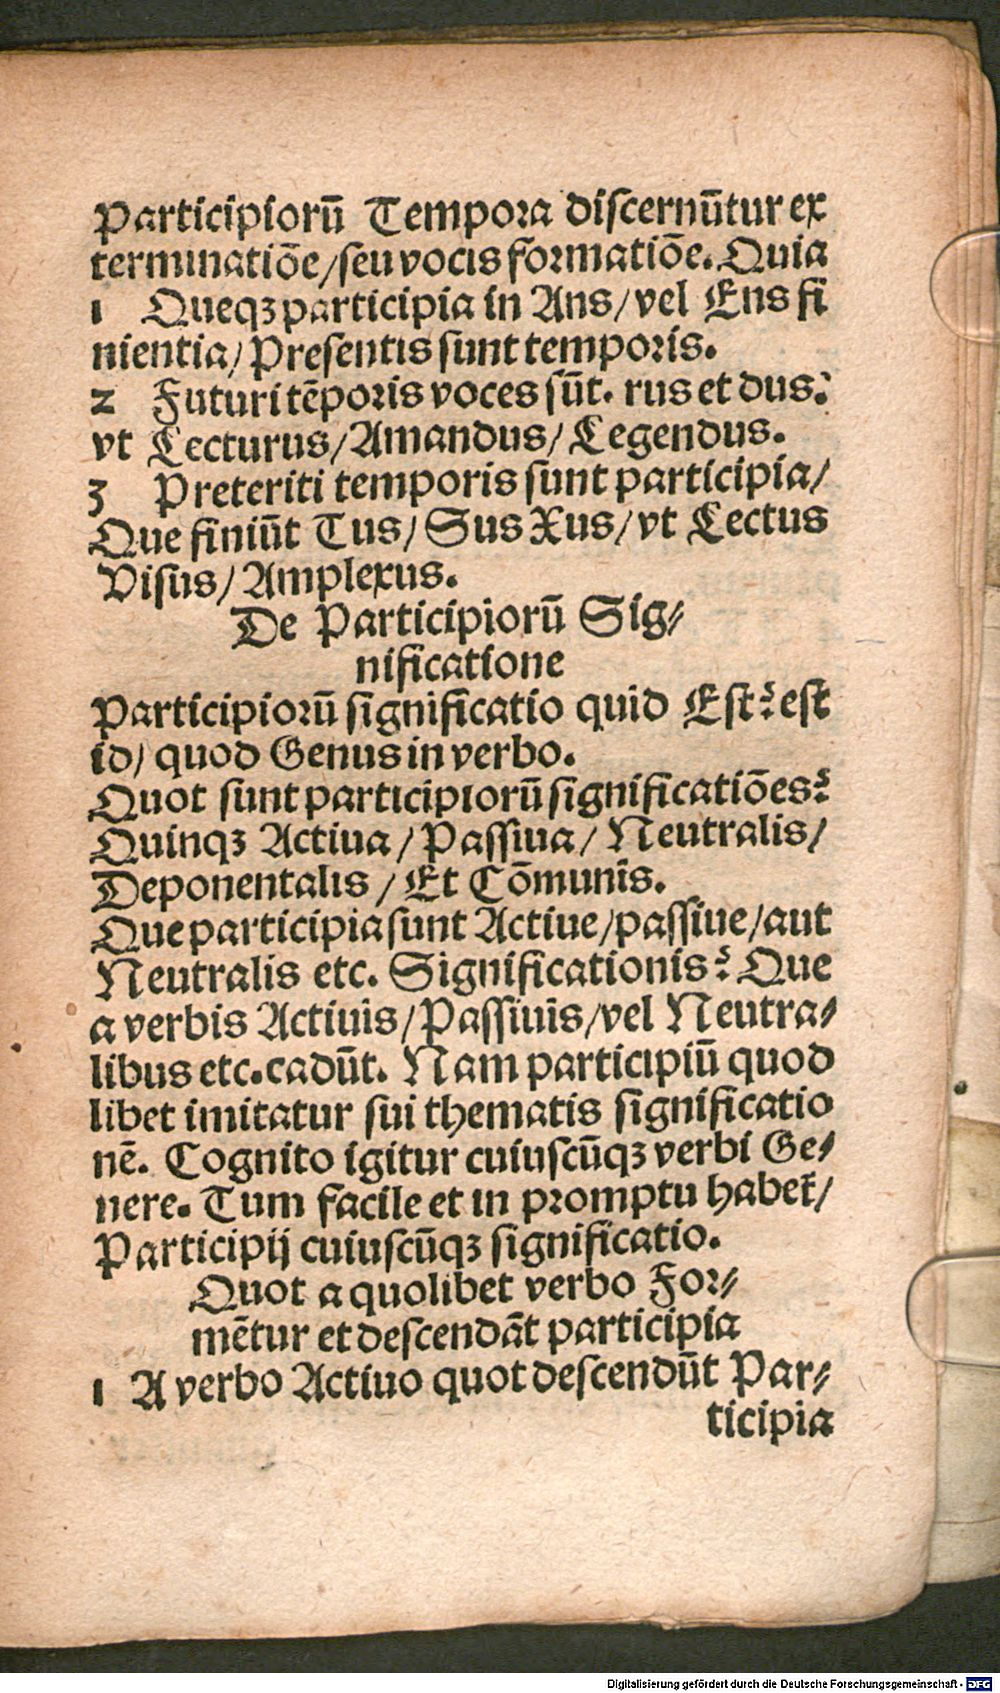 Participiorū Tempora discernūtur ex
terminatiōe/seu vocis formatiōe. Quia
1 Queqꝫ participia in Ans/vel Ens fi
nientia/Presentis sunt temporis.
2 Futuri tēporis voces sūt. rus et dus:
vt Lecturus/Amandus/Legendus.
3 Preteriti temporis sunt participia/
Que finiūt Tus/Sus Xus/vt Lectus
Visus/Amplexus.
De Participiorū Sig⸗
nificatione
Participiorū significatio quid Est? est
id/quod Genus in verbo.
Quot sunt participiorū significatiōes?
Quinqꝫ Actiua/Passiua/Neutralis/
Deponentalis/Et Cōmunis.
Que participia sunt Actiue/passiue/aut
Neutralis etc. Significationis? Que
a verbis Actiuis/Passiuis/vel Neutra⸗
libus etc. cadūt. Nam participiū quod
libet imitatur sui thematis significatio
nē. Cognito igitur cuiuscūqꝫ verbi Ge⸗
nere. Tum facile et in promptu habet᷑/
Participij cuiuscūqꝫ significatio.
Quot a quolibet verbo For⸗
mētur et descendāt participia
1 A verbo Actiuo quot descendūt Par⸗
ticipia
Digitalisierung gefördert durch die Deutsche Forschungsgemeinschaft - DFG